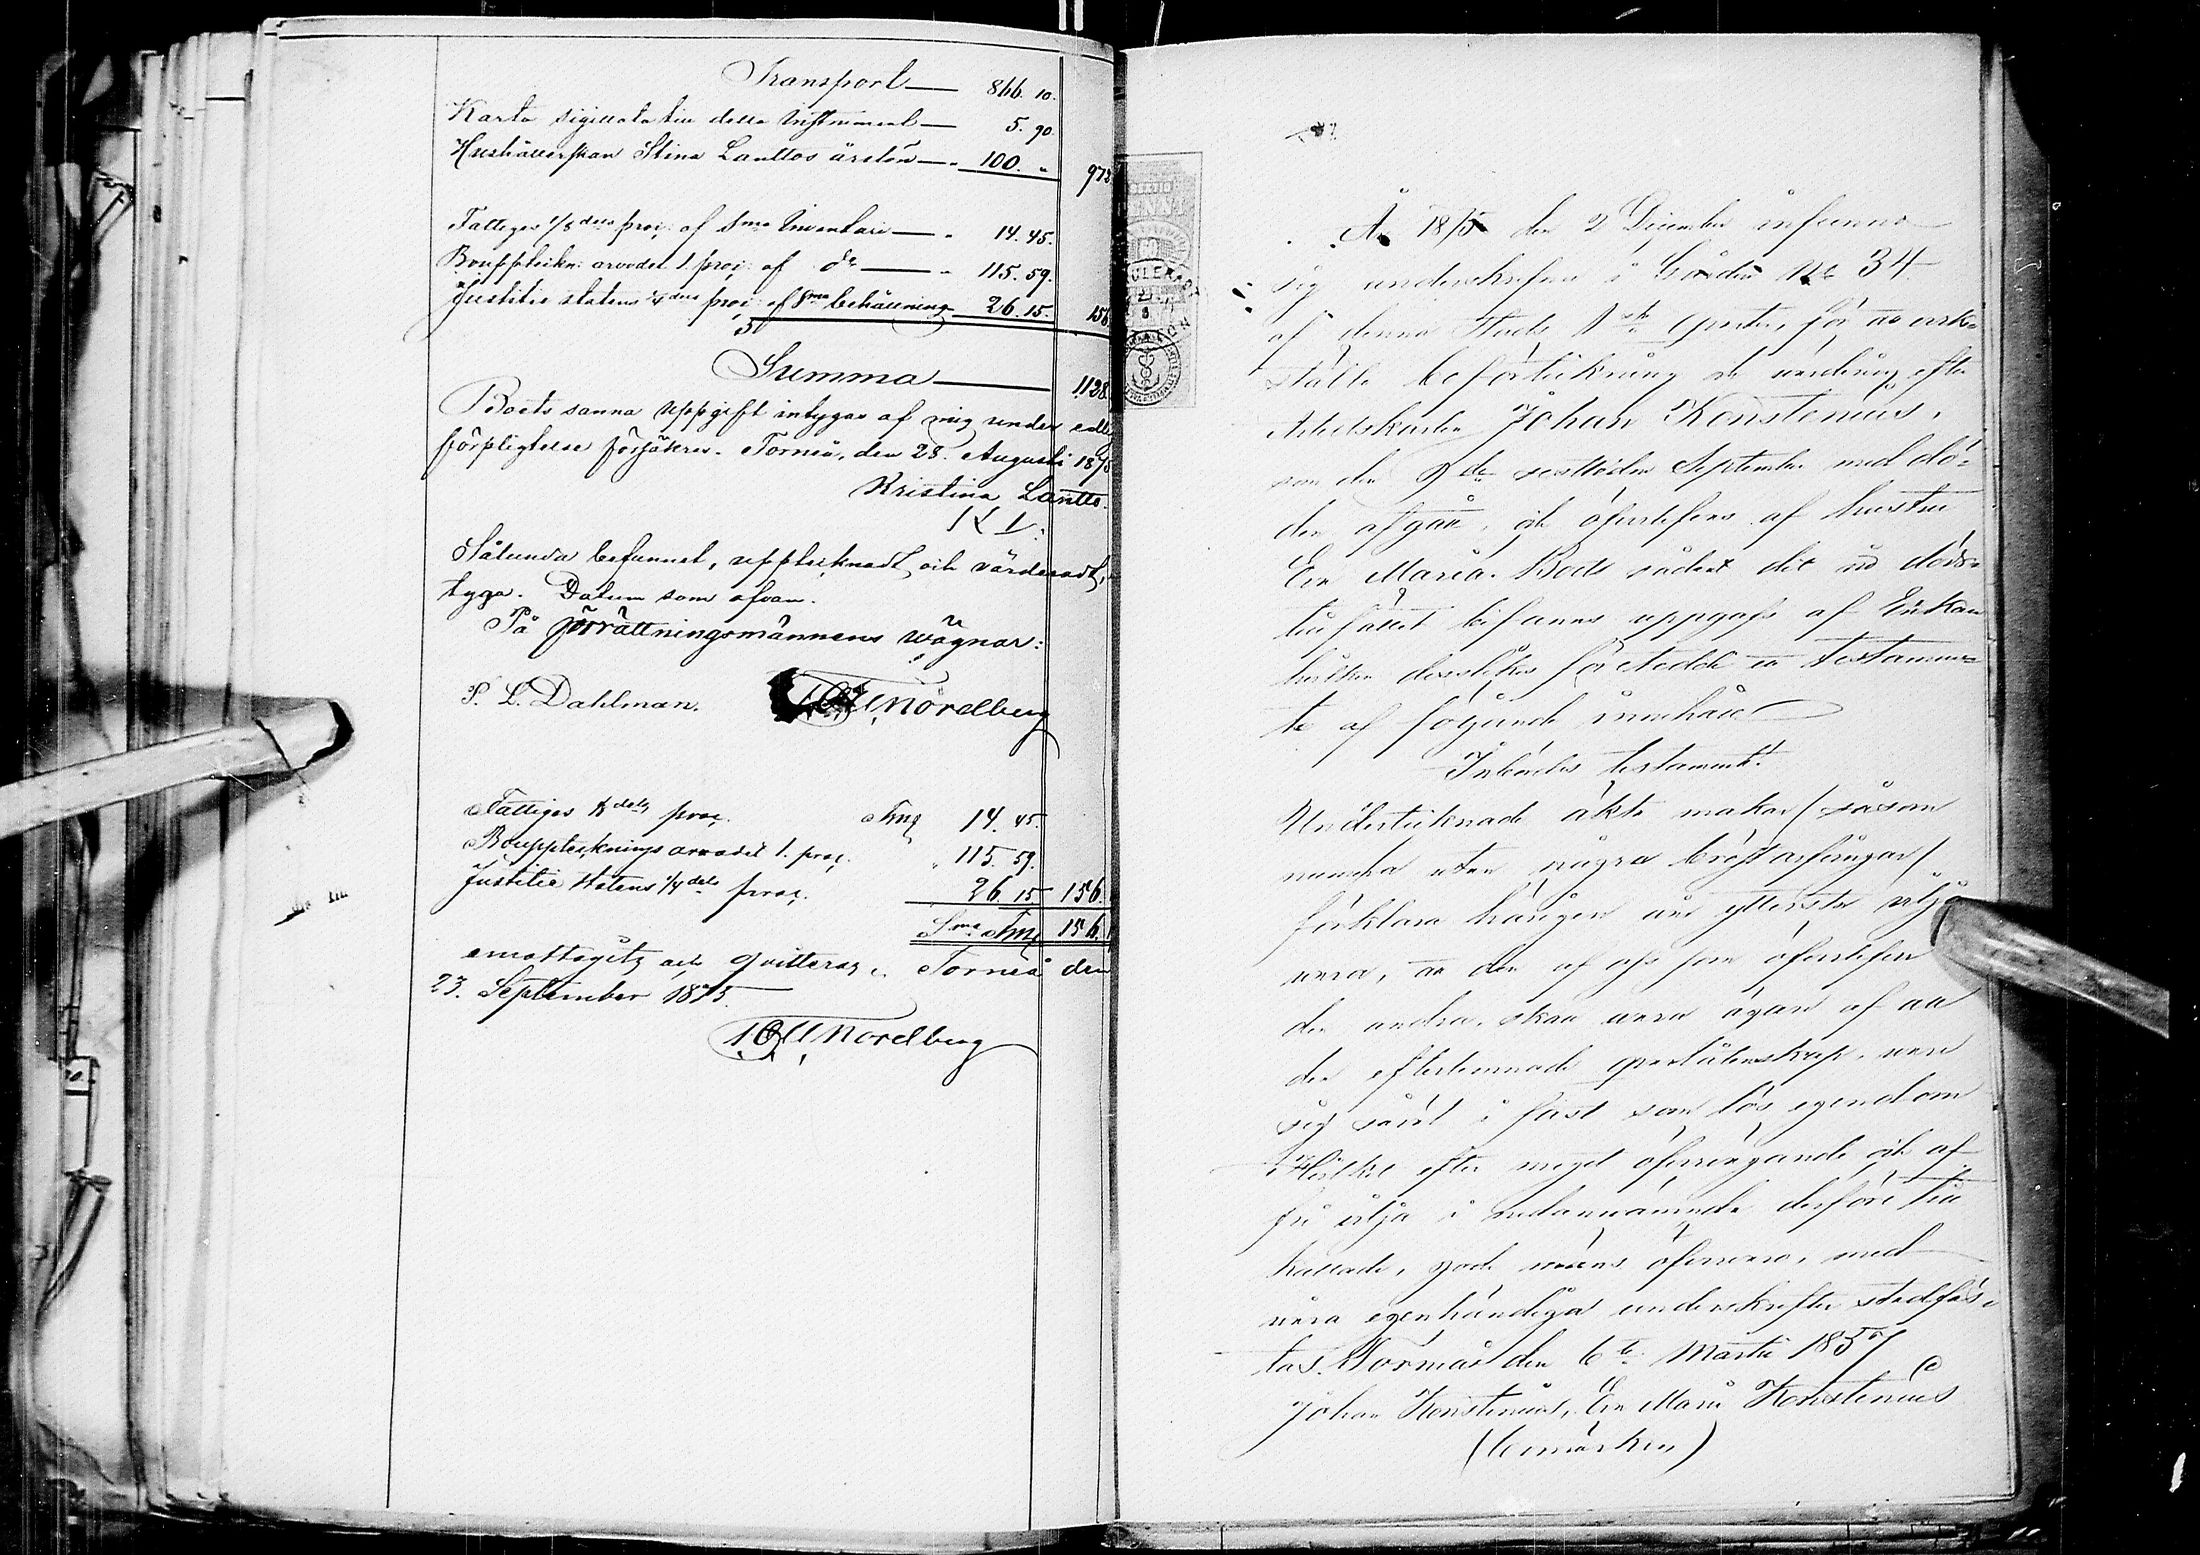 Transport — 866. 10.
Karta sigillata till detta Instrument — 5. 90
Hushållerskan Stina Lanttos årslön — " 100. " 972
Fattiges 1/8 dels proc: af Sma Inventarii — " 14. 45.
Bouppteckn: arvodet 1. proc: af do — " 115. 59.
Justitie statens 1/4 dels proc: af Sma behållning 26. 15. 156
Summa — 1128
Boets sanna uppgift intygas af mig under edlig
förpligtelse försäkras. Torneå, den 28. Augusti 1875
Kristina Lantto.
K L
Sålunda befunnet, upptecknadt och värderadt,
tyga. Datum som ofvan.
På förrättningsmännens wägnar:
P. L. Dahlman. Nordberg
Fattiges 1/8 dels proc. Fmk 14. 45.
Bouppteknings arvodet 1. proc. " 115. 59.
Justitie Statens 1/4 dels proc. 26. 15 156.
Sma Fmk 156.
emottagits och qvitteras. Torneå den
23. September 1875.
Nordberg
År 1875 den 2 December infunno
sig undertecknade i Gården No 34
af denna Stads 1sta Qvarter, för att verk-
ställa boförteckning och värdering efter
Arbetskarlen Johan Konstenius,
som den 9de sistledne September med dö-
den afgått, och öfverlefves af hustru
Eva Maria. Boets tillstånd vid döds-
tillfället befanns uppgafs af Enkan
hvilken derefter företedde ett testamen-
te af följande innehåll
Inbördes testamente.
Undertecknade äkta makar (såsom
numera utan några bröstarfvingar)
förklara härigenom vår yttersta vilja
vara, att den af oss som öfverlefver
den andra, skall vara ägare af all
den efterlemnade qvarlåtenskap, vare
sig såväl i fast som lös egendom
Hvilket efter moget öfvervägande och af
fri vilja i nedannämnde derföre till
kallade, gode mäns öfvervaro, med
våra egenhändiga underskrifter stadfäs-
tas. Torneå den 6te Martii 1857
Johan Konstenius, Eva Maria Konstenius
(bomärken)